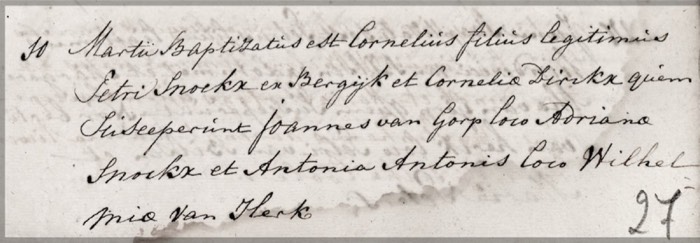 10 Martii Baptizatus est Cornelius filius legitimus
Petri Snoekx ex Bergijk et Corneliæ Dirckx quem
Susceperunt Joannes van Gorp loco Adrianæ
Snoekx et Antonia Antonis loco Wilhel-
miæ Van Herk
27